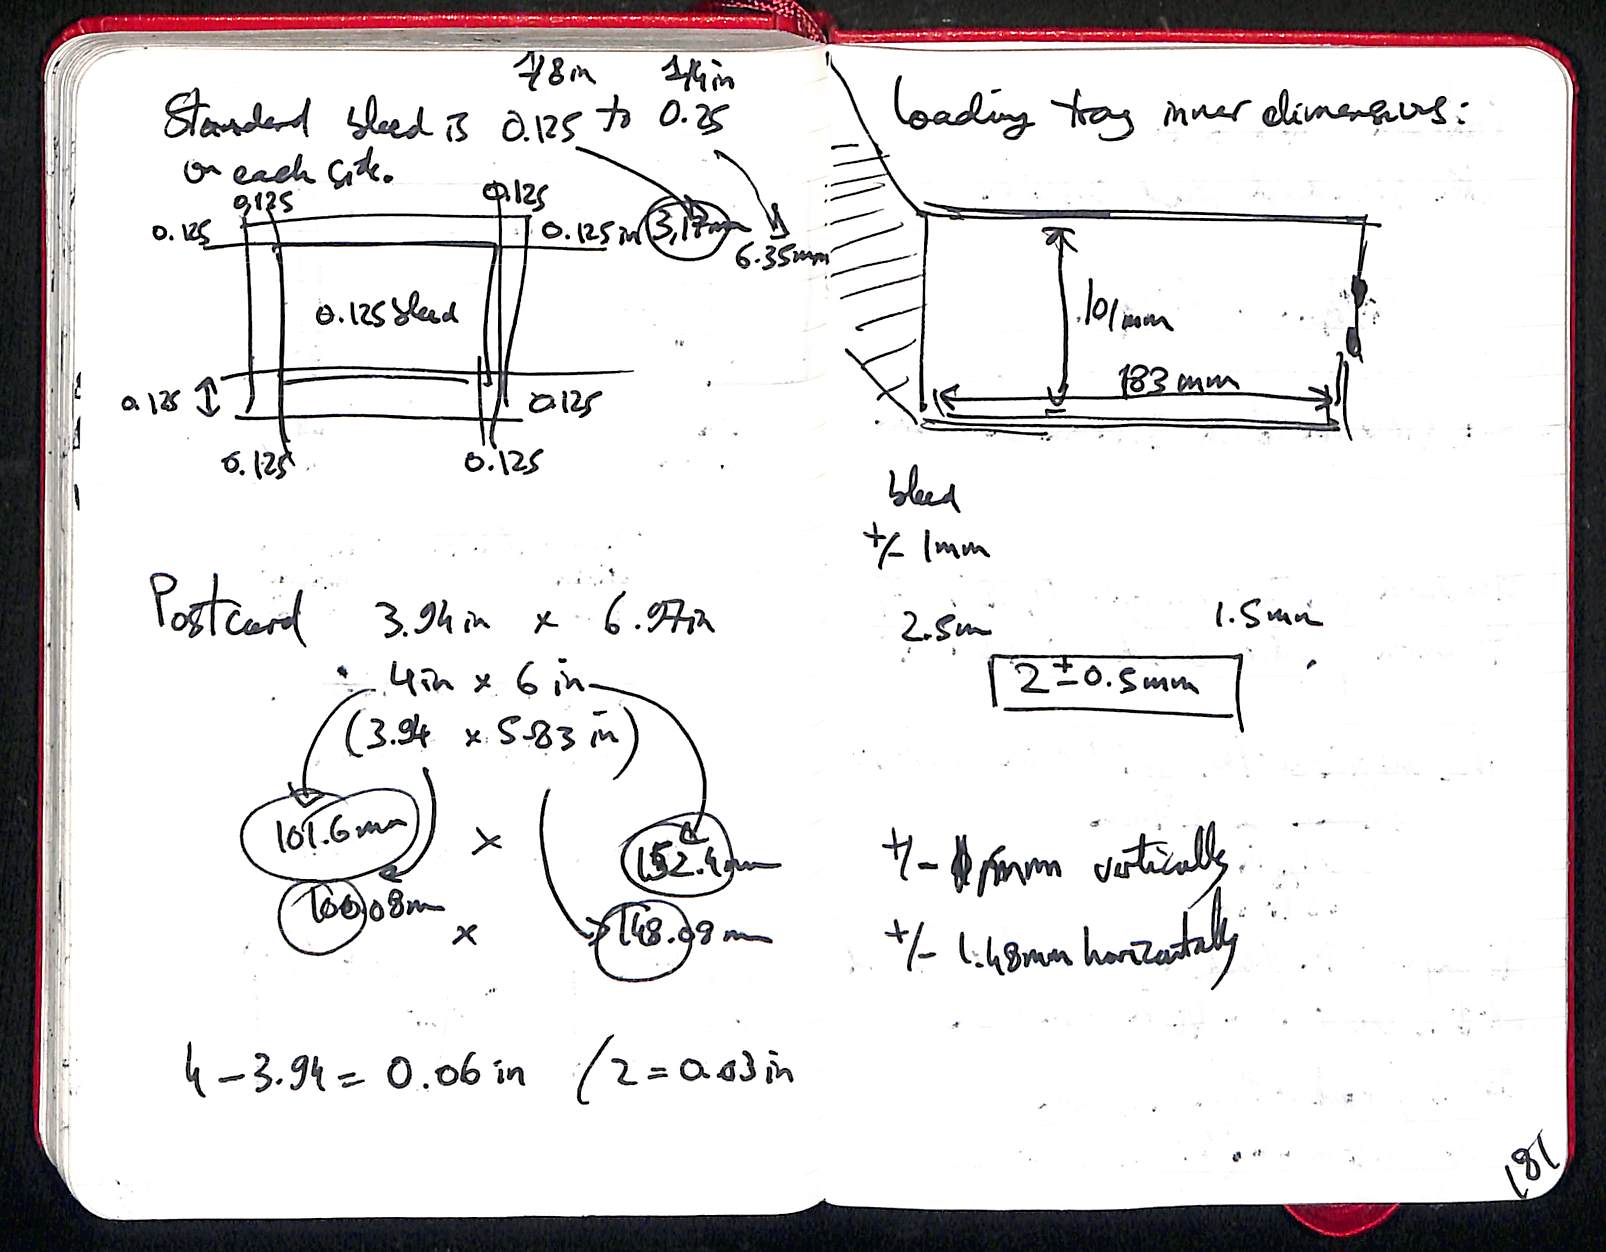 1/8in 1/4in
Standard bleed is 0.125 to 0.25
on each side.
0.125 0.125
0.125 0.125 in 3,17mm
6.35mm
0.125 bleed
0.125 0.125
0.125 0.125
Postcard 3.94in x 6.97in
4in x 6 in
(3.94 x 5.83 in)
101.6mm x 152.4mm
100.08mm x 148.08mm
4-3.94 = 0.06 in /2 = 0.03 in
Loading tray inner dimensions:
101mm
183mm
bleed
+/- 1mm
2.5m 1.5mm
2 ± 0.5mm
+/- mm vertically
+/- 1.48mm horizontally
181